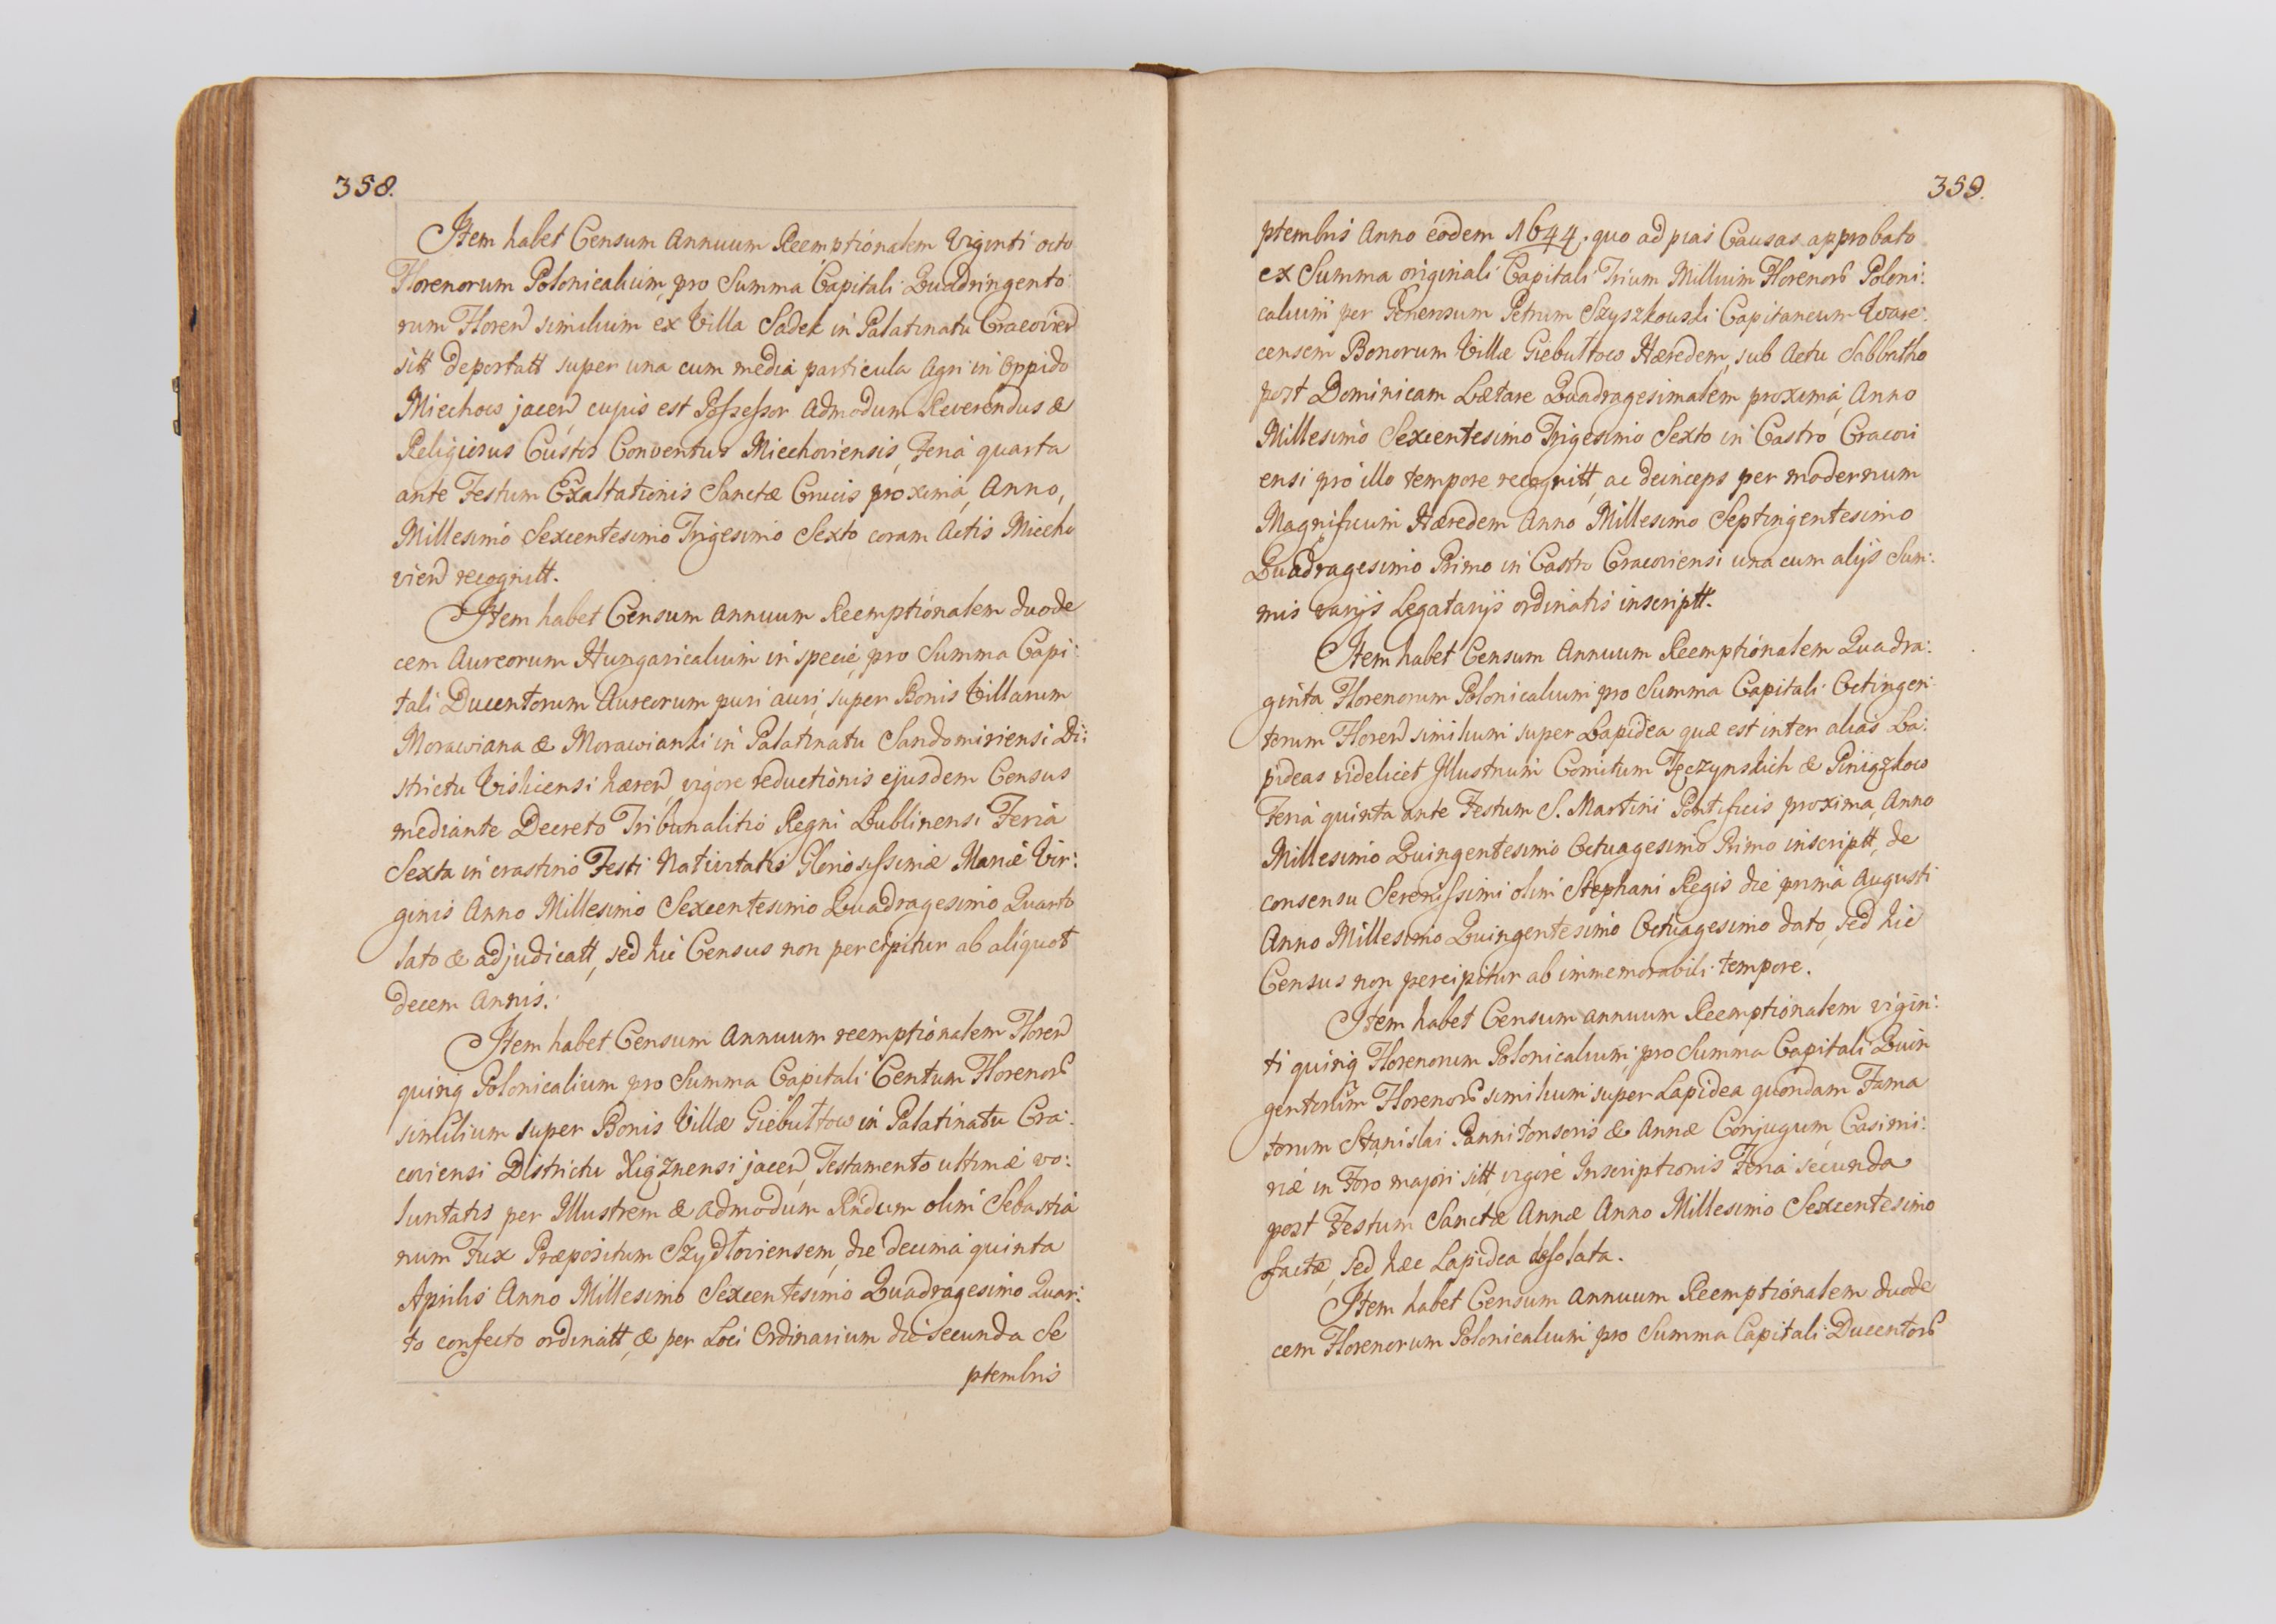 358.
Item habet Censum Annuum Reemptionalem Viginti octo
Florenorum Polonicalium, pro Summa Capitali Quadringento
rum Floren similium ex Villa Sadek in Palatinatu Cracovien
sitt deportatt super una cum media particula Agri in Oppido
Miechow jacen, cujus est Possessor Admodum Reverendus &
Religiosus Custos Conventus Miechoviensis, Feria quarta
ante Festum Exaltationis Sanctæ Crucis proxima, Anno,
Millesimo Sexcentesimo Trigesimo Sexto coram Actis Miecho
vien recognitt.
Item habet Censum Annuum Reemptionalem duode
cem Aureorum Hungaricalium in specie, pro Summa Capi:
tali Ducentorum Aureorum puri auri, super Bonis Villarum
Morawiana & Morawianki in Palatinatu Sandomiriensi Di:
strictu Visliciensi hæren, vigore reductionis ejusdem Census
mediante Decreto Tribunalitio Regni Lublinensi Feria
Sexta in crastino Festi Nativitatis Gloriosissimæ Mariæ Vir:
ginis Anno Millesimo Sexcentesimo Quadragesimo Quarto
lato & adjudicatt, sed hic Census non percipitur ab aliquot
decem Annis.
Item habet Censum Annuum reemptionalem Floren
quinq Polonicalium pro Summa Capitali Centum Florenor
similium super Bonis Villæ Giebułtow in Palatinatu Cra:
coviensi Districtu Xiąznensi jacen, Testamento ultimæ vo:
luntatis per Illustrem & admodum Rndum olim Sebastia
num Fux Præpositum Szydłoviensem, die decima quinta
Aprilis Anno Millesimo Sexcentesimo Quadragesimo Quar:
to confecto ordinatt, & per Loci Ordinarium die secunda Se
ptembris
359.
ptembris Anno eodem 1644. quo ad pias Causas approbato
ex Summa originali Capitali Trium Millium Florenor Poloni:
calium per Generosum Petrum Szyszkowski Capitaneum Ware:
censem Bonorum Villæ Giebułtow Hæredem, sub Actu Sabbatho
post Dominicam Lætare Quadragesimalem proxima, Anno
Millesimo Sexcentesimo Trigesimo Sexto in Castro Cracovi
ensi pro illo tempore recognitt, ac deinceps per modernum
Magnificum Hæredem Anno Millesimo Septingentesimo
Quadragesimo Primo in Castro Cracoviensi una cum alijs Sum:
mis varijs Legatarijs ordinatis inscriptt.
Item habet Censum Annuum Reemptionalem Quadra:
ginta Florenorum Polonicalium pro Summa Capitali Octingen
torum Floren similium super Lapidea quæ est inter alias La:
pideas videlicet Illustrium Comitum Tęczynskich & Piniąžkow
Feria quinta ante Festum S. Martini Pontificis proxima, Anno
Millesimo Quingentesimo Octuagesimo Primo inscriptt, de
consensu Serenissimi olim Stephani Regis die prima Augusti
Anno Millesimo Quingentesimo Octuagesimo dato, sed hic
Census non percipitur ab immemorabili tempore.
Item habet Censum annuum Reemptionalem vigin:
ti quinq Florenorum Polonicalium, pro Summa Capitali Quin
gentorum Florenor similium super Lapidea quondam Fama
torum Stanislai Pannitonsoris & Annæ Conjugum, Casimi:
riæ in Foro majori sitt, vigore Inscriptionis Feria secunda
post Festum Sanctæ Annæ Anno Millesimo Sexcentesimo
factæ, sed hæc Lapidea desolata.
Item habet Censum Annuum Reemptionalem duode
cem Florenorum Polonicalium pro Summa Capitali Ducentor